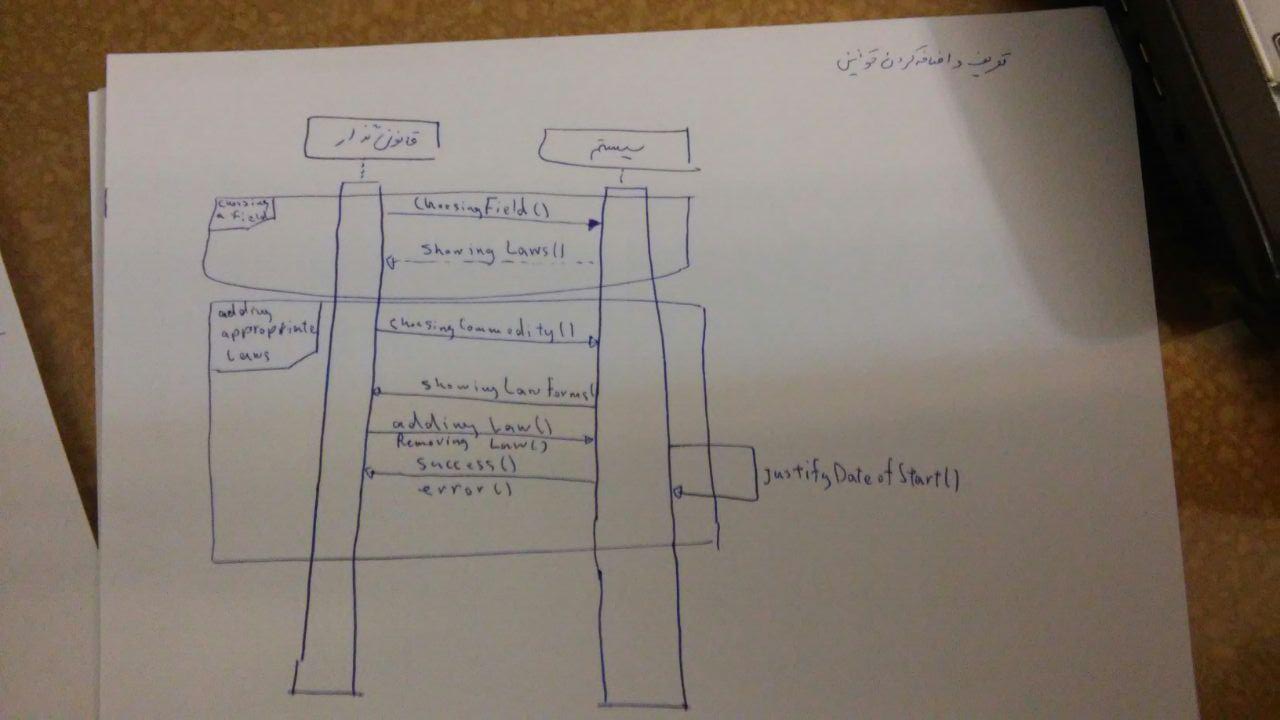 تعریف و اضافه کردن قوانین
قانون گذار
سیستم
choosing
a field
choosingField()
showing Laws()
adding
appropriate
Laws
choosingCommodity()
showingLawForms(
adding Law()
Removing Law()
success()
error()
justifyDateofStart()